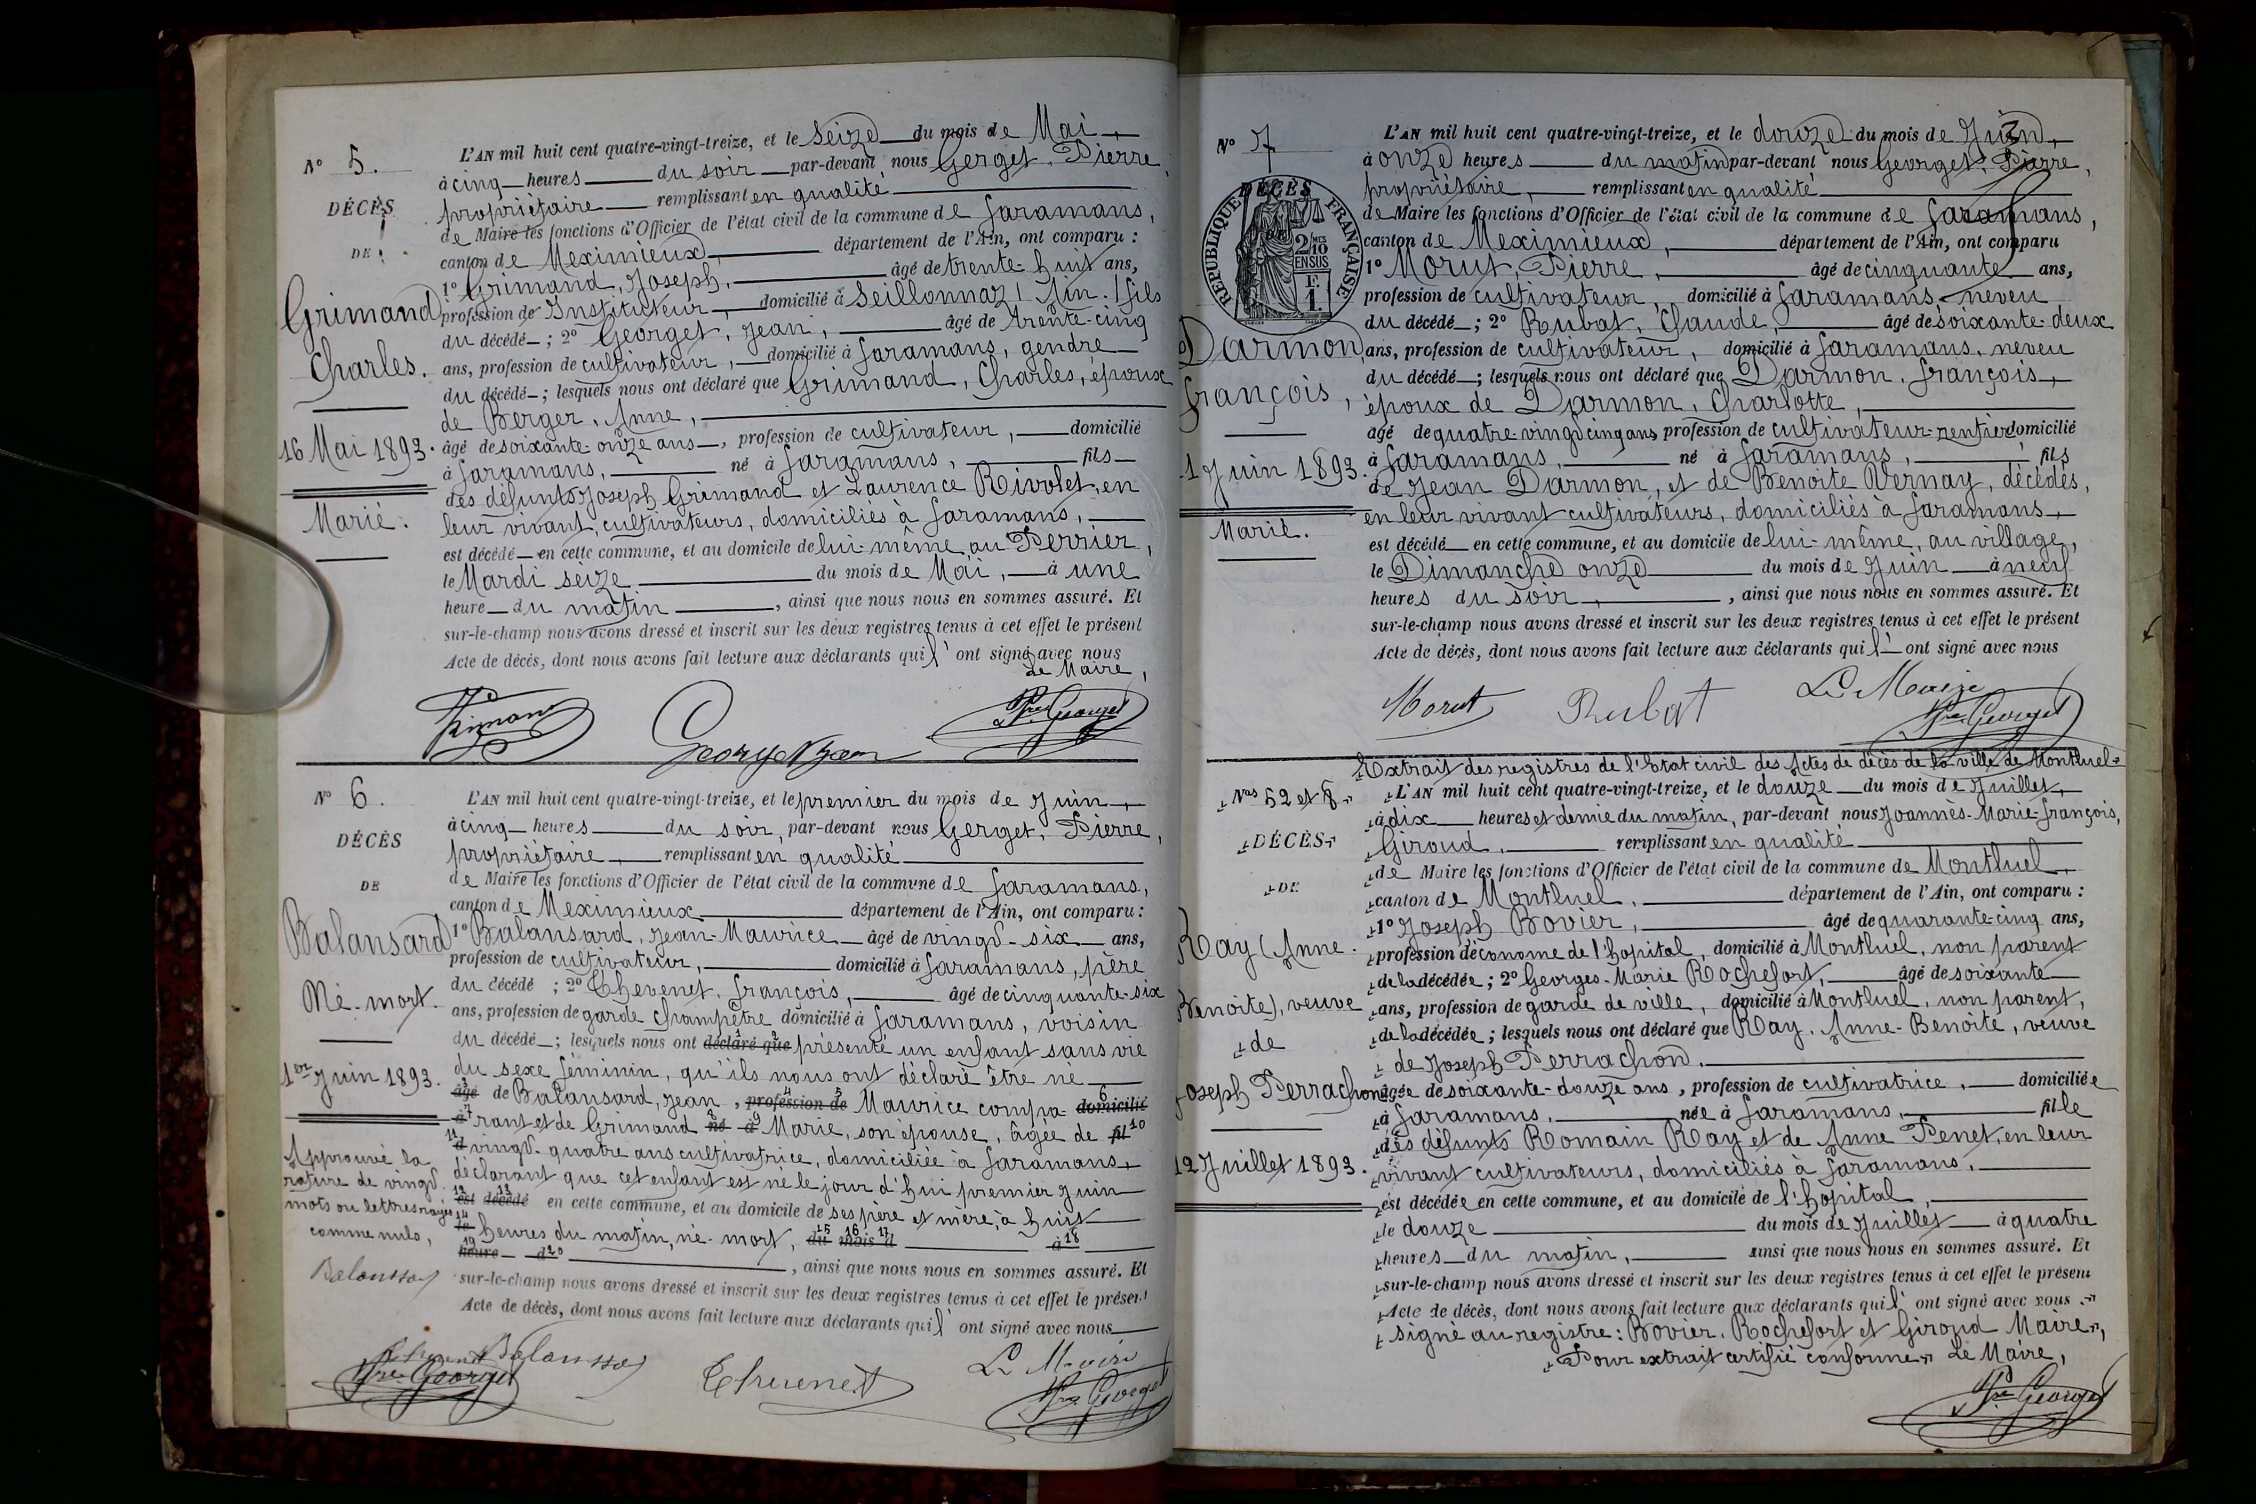 N° 5.
DÉCÈS
DE
Grimand
Charles.
16 Mai 1893.
Marié.
L'AN mil huit cent quatre-vingt-treize, et le seize du mois de Mai,
à cinq heures du soir par-devant nous Gerget, Pierre,
propriétaire remplissant en qualité
de Maire les fonctions d'Officier de l'état civil de la commune de Faramans,
canton de Meximieux, département de l'Ain, ont comparu :
1° Grimand, Joseph, âgé de trente-huit ans,
profession de Instituteur, domicilié à Seillonnaz (Ain) fils
du décédé ; 2° Georget, Jean, âgé de trente-cinq
ans, profession de cultivateur, domicilié à Faramans, gendre
du décédé ; lesquels nous ont déclaré que Grimand, Charles, époux
de Berger, Anne,
âgé de soixante-onze ans, profession de cultivateur, domicilié
à Faramans, né à Faramans, fils
des défunts Joseph Grimand et Laurence Rivolet, en
leur vivant, cultivateurs, domiciliés à Faramans,
est décédé en cette commune, et au domicile de lui-même au Perrier,
le Mardi seize du mois de Mai, à une
heure du matin, ainsi que nous nous en sommes assuré. Et
sur-le-champ nous avons dressé et inscrit sur les deux registres tenus à cet effet le présent
Acte de décès, dont nous avons fait lecture aux déclarants qui l'ont signé avec nous
Le Maire,
Grimand Georget Jean Pre Georget
N° 6.
DÉCÈS
DE
Balansard
Né-mort.
1er Juin 1893.
Approuvé la
rature de vingt
mots ou lettres rayés
comme nuls,
L'AN mil huit cent quatre-vingt-treize, et le premier du mois de Juin,
à cinq heures du soir, par-devant nous Gerget, Pierre,
propriétaire, remplissant en qualité
de Maire les fonctions d'Officier de l'état civil de la commune de Faramans,
canton de Meximieux département de l'Ain, ont comparu :
1° Balansard, Jean-Maurice âgé de vingt-six ans,
profession de cultivateur, domicilié à Faramans, père
du décédé ; 2° Thevenet, François, âgé de cinquante-six
ans, profession de garde champêtre domicilié à Faramans, voisin
du décédé ; lesquels nous ont déclaré que présenté un enfant sans vie
du sexe féminin, qu'ils nous ont déclaré être né
âgé de Balansard, Jean, profession de Maurice compa domicilié
à rant et de Grimand né à Marie, son épouse, âgée de fil
d vingt-quatre ans cultivatrice, domiciliée à Faramans,
déclarant que cet enfant est né le jour d'hui premier Juin
est décédé en cette commune, et au domicile de ses père et mère, à huit
le heures du matin, né-mort, du mois d à
heure d, ainsi que nous nous en sommes assuré. Et
sur-le-champ nous avons dressé et inscrit sur les deux registres tenus à cet effet le présent
Acte de décès, dont nous avons fait lecture aux déclarants qui l'ont signé avec nous
Thevenet Le Maire
Pre Georget Pre Georget
N° 7
DÉCÈS
RÉPUBLIQUE FRANÇAISE
2/10 EN SUS
F. 1
Darmon
François,
11 Juin 1893.
Marié.
L'AN mil huit cent quatre-vingt-treize, et le douze du mois de Juin,
à onze heures du matin par-devant nous Georget, Pierre,
propriétaire, remplissant en qualité
de Maire les fonctions d'Officier de l'état civil de la commune de Faramans,
canton de Meximieux, département de l'Ain, ont comparu
1° Morut, Pierre, âgé de cinquante ans,
profession de cultivateur, domicilié à Faramans, neveu
du décédé ; 2° Rubat, Claude, âgé de soixante-deux
ans, profession de cultivateur, domicilié à Faramans, neveu
du décédé ; lesquels nous ont déclaré que Darmon, François,
époux de Darmon, Charlotte,
âgé de quatre-vingt cinq ans profession de cultivateur-rentier domicilié
à Faramans, né à Faramans, fils
de Jean Darmon, et de Benoite Vernay, décédés,
en leur vivant cultivateurs, domiciliés à Faramans,
est décédé en cette commune, et au domicile de lui-même, au village,
le Dimanche onze du mois de Juin à neuf
heures du soir, ainsi que nous nous en sommes assuré. Et
sur-le-champ nous avons dressé et inscrit sur les deux registres tenus à cet effet le présent
Acte de décès, dont nous avons fait lecture aux déclarants qui l'ont signé avec nous
Morut Rubat Le Maire
Pre Georget
Extrait des registres de l'Etat civil des Actes de décès de la ville de Montluel
Nos 52 et 8
DÉCÈS
DE
Ray (Anne
Benoite), veuve
de
Joseph Perrachon
12 Juillet 1893.
L'AN mil huit cent quatre-vingt-treize, et le douze du mois de Juillet,
à dix heures et demie du matin, par-devant nous Joannès-Marie-François,
Giroud, remplissant en qualité
de Maire les fonctions d'Officier de l'état civil de la commune de Montluel,
canton de Montluel, département de l'Ain, ont comparu :
1° Joseph Bovier, âgé de quarante-cinq ans,
profession d'économe de l'hôpital, domicilié à Montluel, non parent
de la décédée ; 2° Georges-Marie Rochefort, âgé de soixante
ans, profession de garde de ville, domicilié à Montluel, non parent,
de la décédée ; lesquels nous ont déclaré que Ray, Anne-Benoite, veuve
de Joseph Perrachon.
âgée de soixante-douze ans, profession de cultivatrice, domiciliée
à Faramans, née à Faramans, fille
des défunts Romain Ray et de Anne Penet, en leur
vivant cultivateurs, domiciliés à Faramans,
est décédée en cette commune, et au domicile de l'hôpital,
le douze du mois de Juillet à quatre
heures du matin, ainsi que nous nous en sommes assuré. Et
sur-le-champ nous avons dressé et inscrit sur les deux registres tenus à cet effet le présent
Acte de décès, dont nous avons fait lecture aux déclarants qui l'ont signé avec nous.
signé au registre : Bovier, Rochefort et Giroud Maire,
Pour extrait certifié conforme Le Maire,
Pre Georget